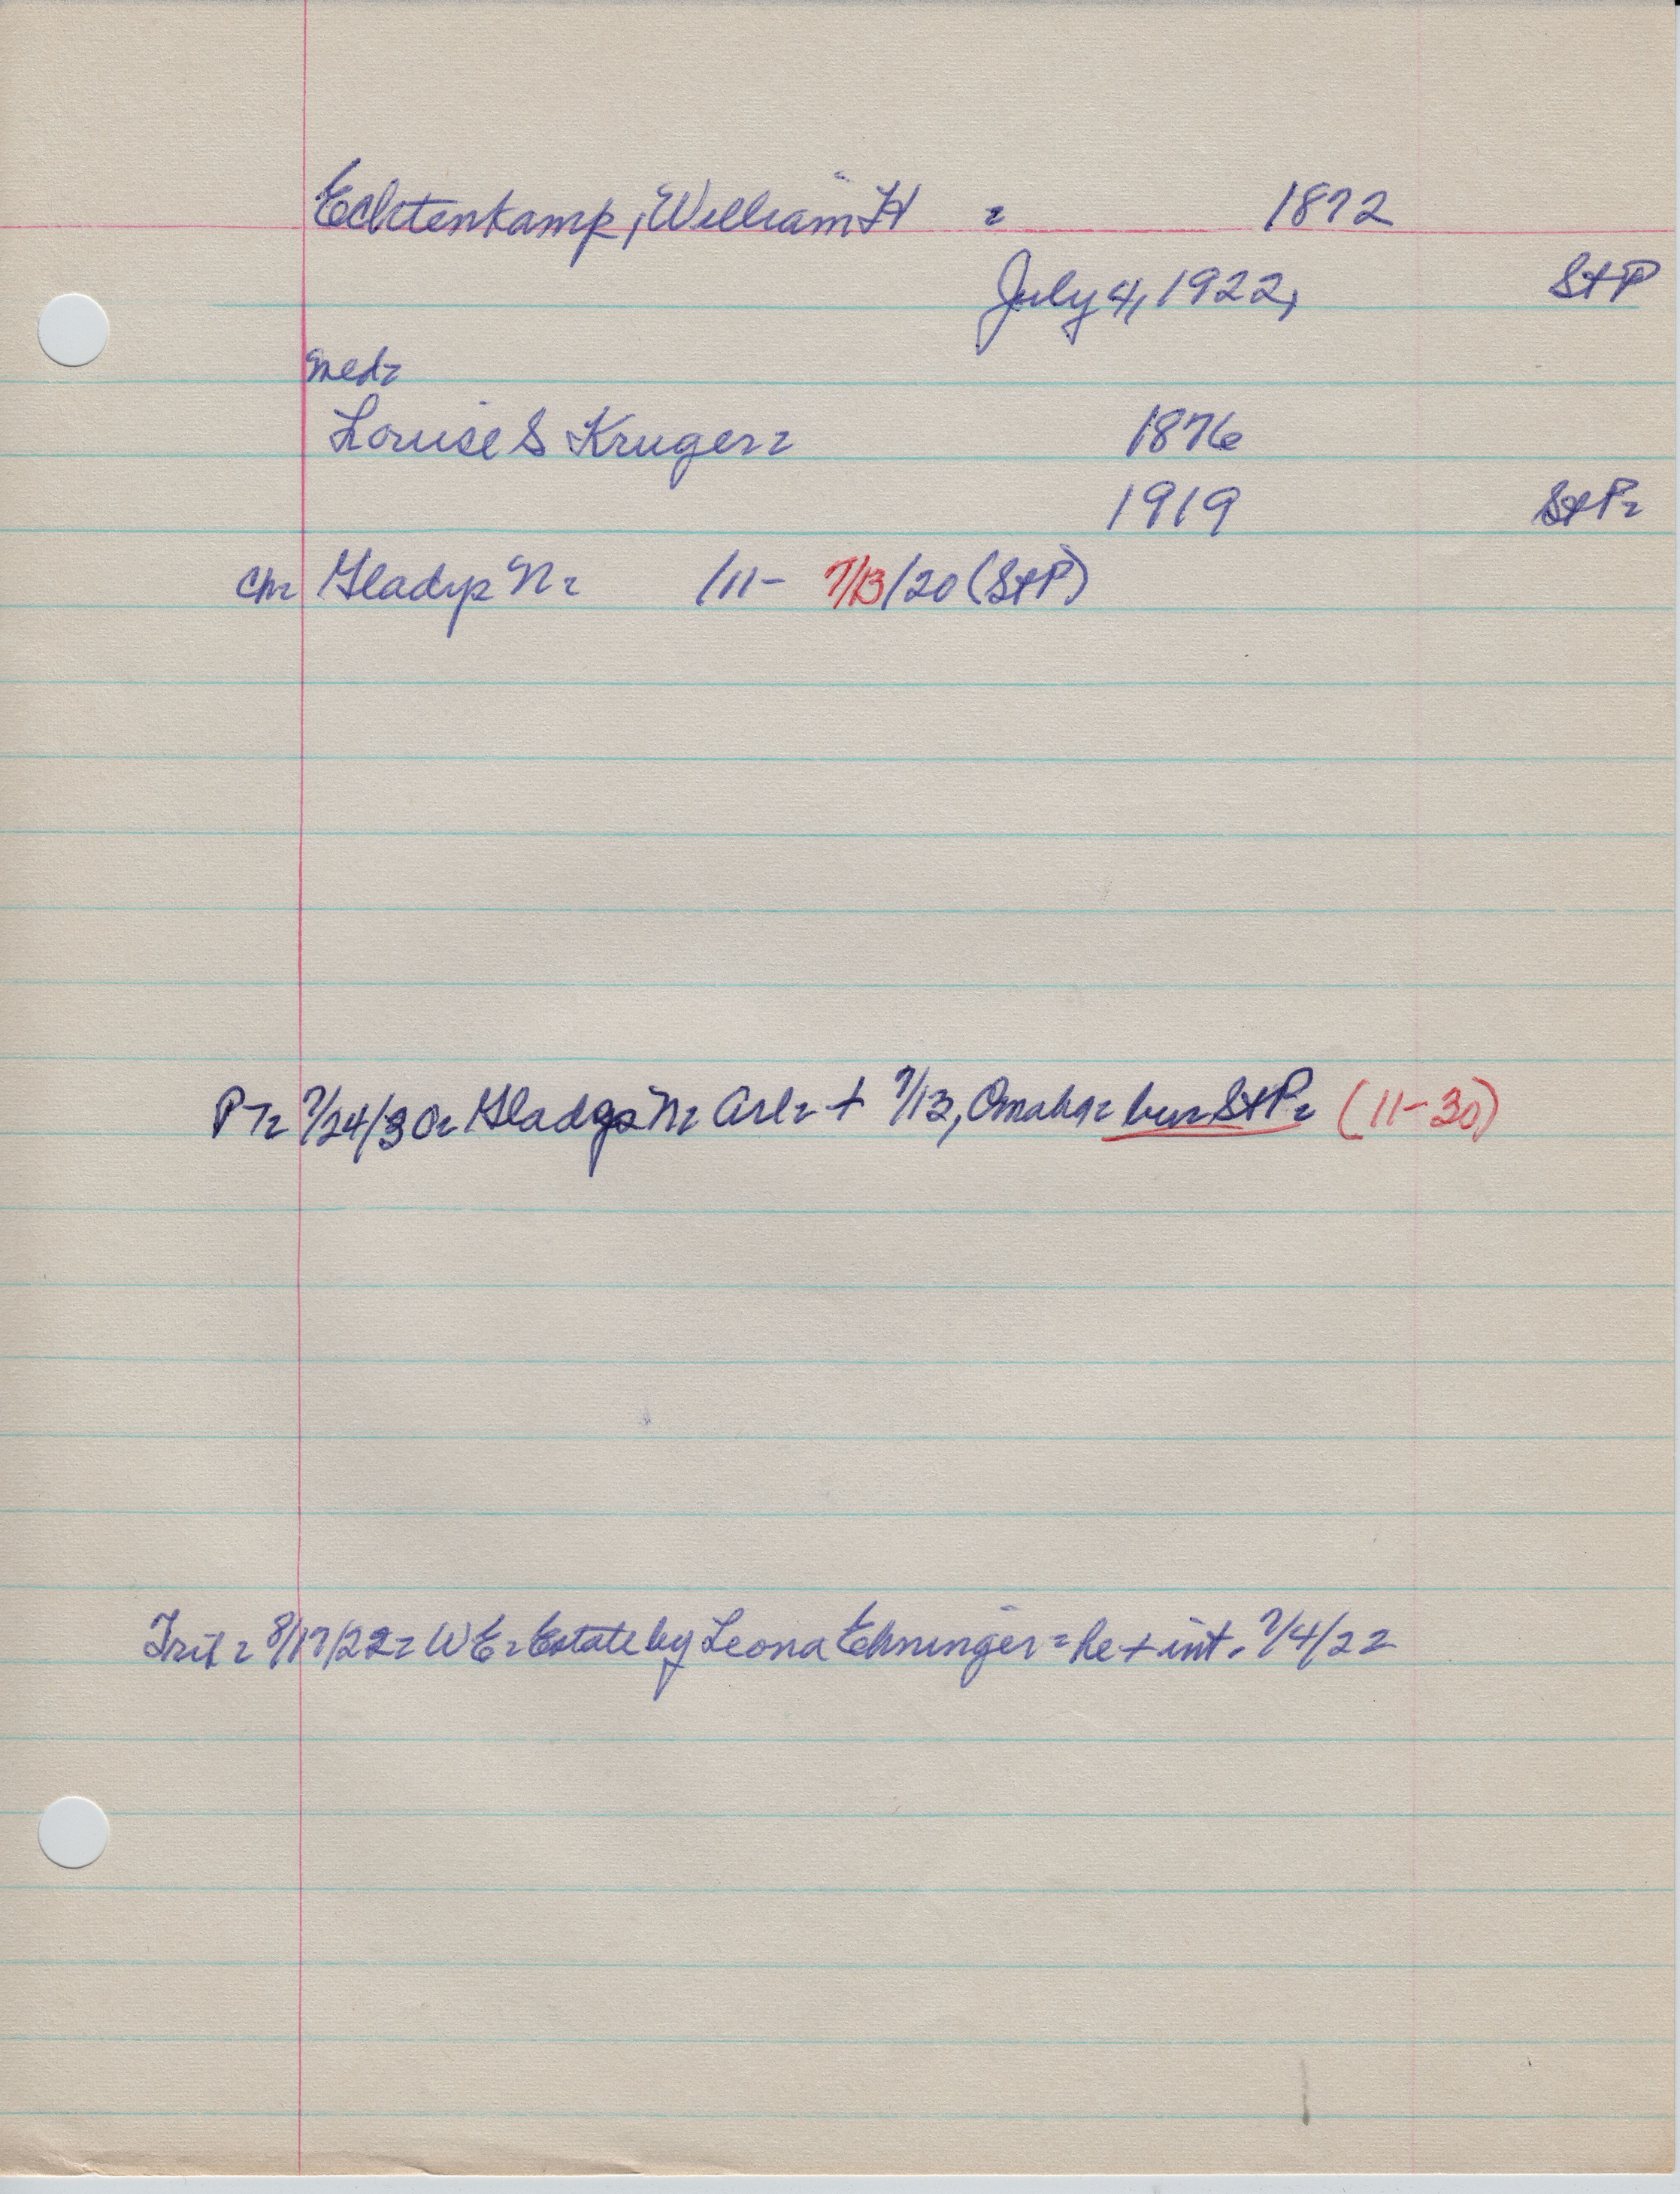 Echtenkamp, William H = 1872
July 4, 1922, St P
med=
Louise S Kruger= 1876
1919 St P=
Ch= Gladys N= /11- 7/13/20 (St P)
PT= 7/24/30= Gladys N= Arl= + 7/13, Omaha= bur= St P= (11-30)
Trib= 8/17/22= WE= Estate by Leona Ehninger= he + int. 7/4/22